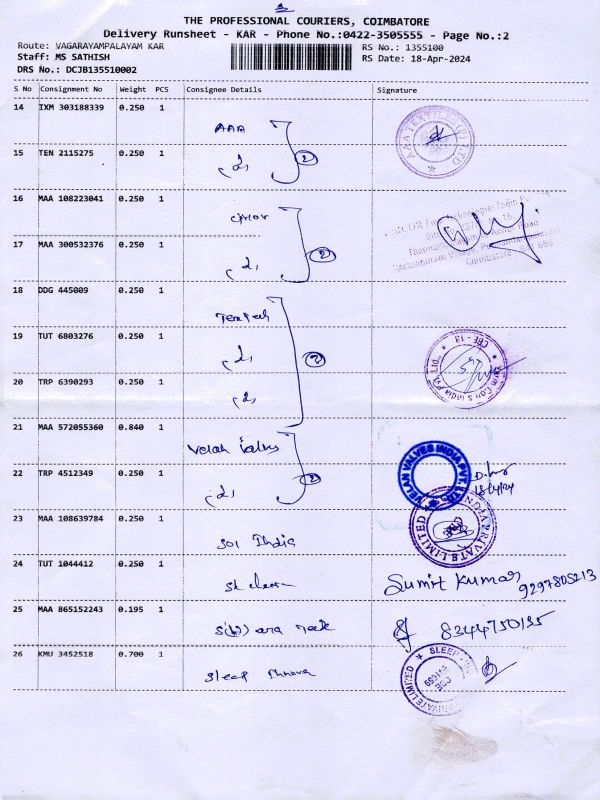 THE PROFESSIONAL COURIERS, COIMBATORE
Delivery Runsheet - KAR - Phone No.:0422-3505555 - Page No.:2
Route: VAGARAYAMPALAYAM KAR
RS No.: 1355100
Staff: MS SATHISH
RS Date: 18-Apr-2024
DRS No.: DCJB135510002
S No Consignment No Weight PCS Consignee Details Signature
14 IXM 303188339 0.250 1
AAA
15 TEN 2115275 0.250 1
2
16 MAA 108223041 0.250 1
17 MAA 300532376 0.250 1
2
18 DDG 445009 0.250 1
19 TUT 6803276 0.250 1
CBE - 13
20 TRP 6390293 0.250 1
21 MAA 572055360 0.840 1
Velan Valves
VELAN VALVES INDIA PVT. LTD.
22 TRP 4512349 0.250 1
2
18/4/24
23 MAA 108639784 0.250 1
INDIA PRIVATE LIMITED
SOI India
24 TUT 1044412 0.250 1
Sumit Kumar
9297805213
25 MAA 865152243 0.195 1
8344750135
26 KMU 3452518 0.700 1
Sleep
SLEEP
PRIVATE LIMITED